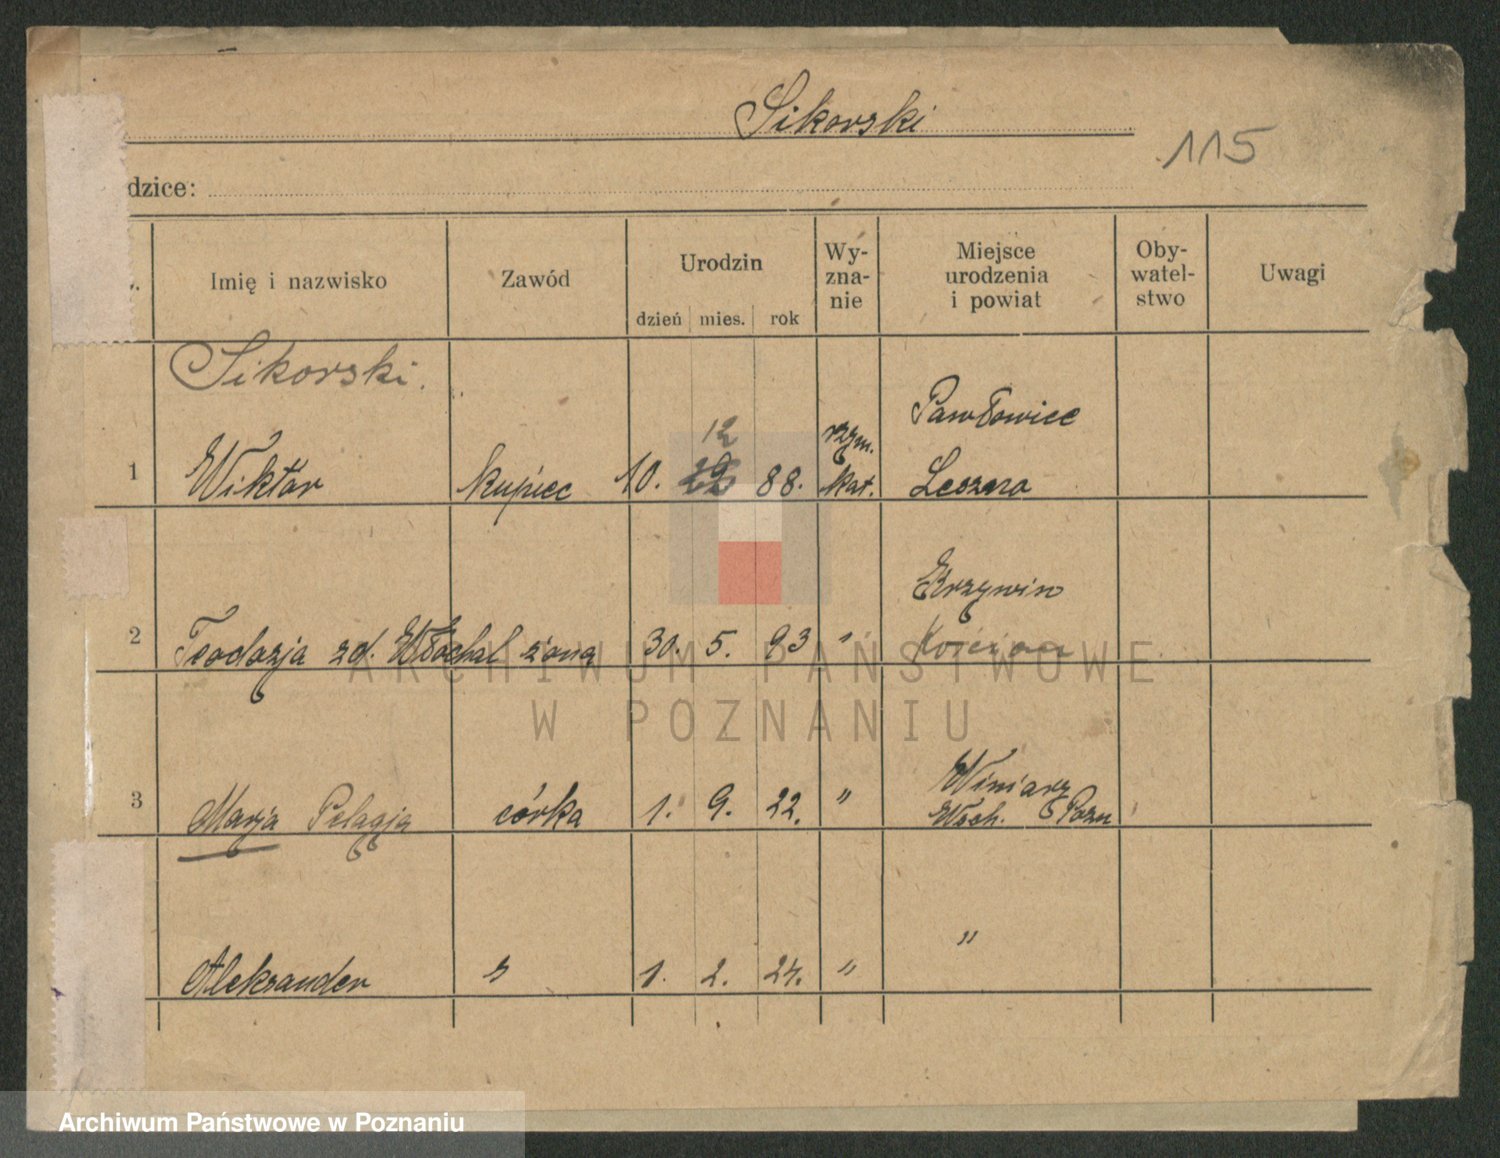 Sikorski
115
dzice:
Imię i nazwisko
Zawód
Urodzin
dzień mies. rok
Wy-
zna-
nie
Miejsce
urodzenia
i powiat
Oby-
watel-
stwo
Uwagi
Sikorski.
1 Wiktór kupiec 10. 12 88. rzym. kat. Pawłowice
Leszno
2 Teodozja zd. Włochal żona 30. 5. 93 " Krzywin
Kościan
3 Marja Pelagja córka 1. 9. 22. " Winiarz
Wsch. Pozn
Aleksander " 1. 2. 24. " "
ARCHIWUM PAŃSTWOWE
W POZNANIU
Archiwum Państwowe w Poznaniu